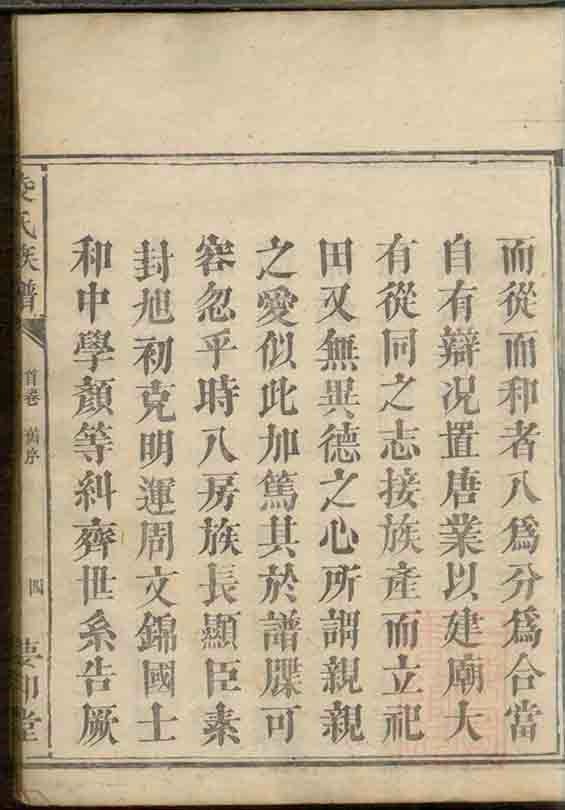 而從而和者八爲分爲合當
自有辯况置唐業以建廟大
有從同之志接族產而立祀
田又無異德之心所謂親親
之愛似此加篤其於譜牒可
容忽乎時八房族長顯臣素
封旭初克明運周文錦國士
和中學顏等糾齊世系告厥
氏族譜
首卷 舊序
四
堂